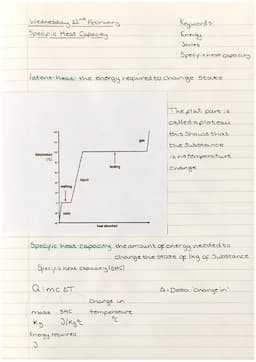 Wednesday 22nd February
Keywords:
Specific Heat Capacity
Energy
Joules
Specific heat capacity
latent heat: the energy required to change state
The flat part is
called a plateau
this shows that
the substance
is no temperature
change
temperature
(°C)
gas
boiling
liquid
melting
solid
heat absorbed
Specific heat capacity: the amount of energy needed to
change the state of 1kg of substance
Specific heat capacity (SHC)
Q = mc ΔT
Δ: Delta 'change in'
Change in
mass SHC temperature
Kg J/Kg°C °C
Energy required
J